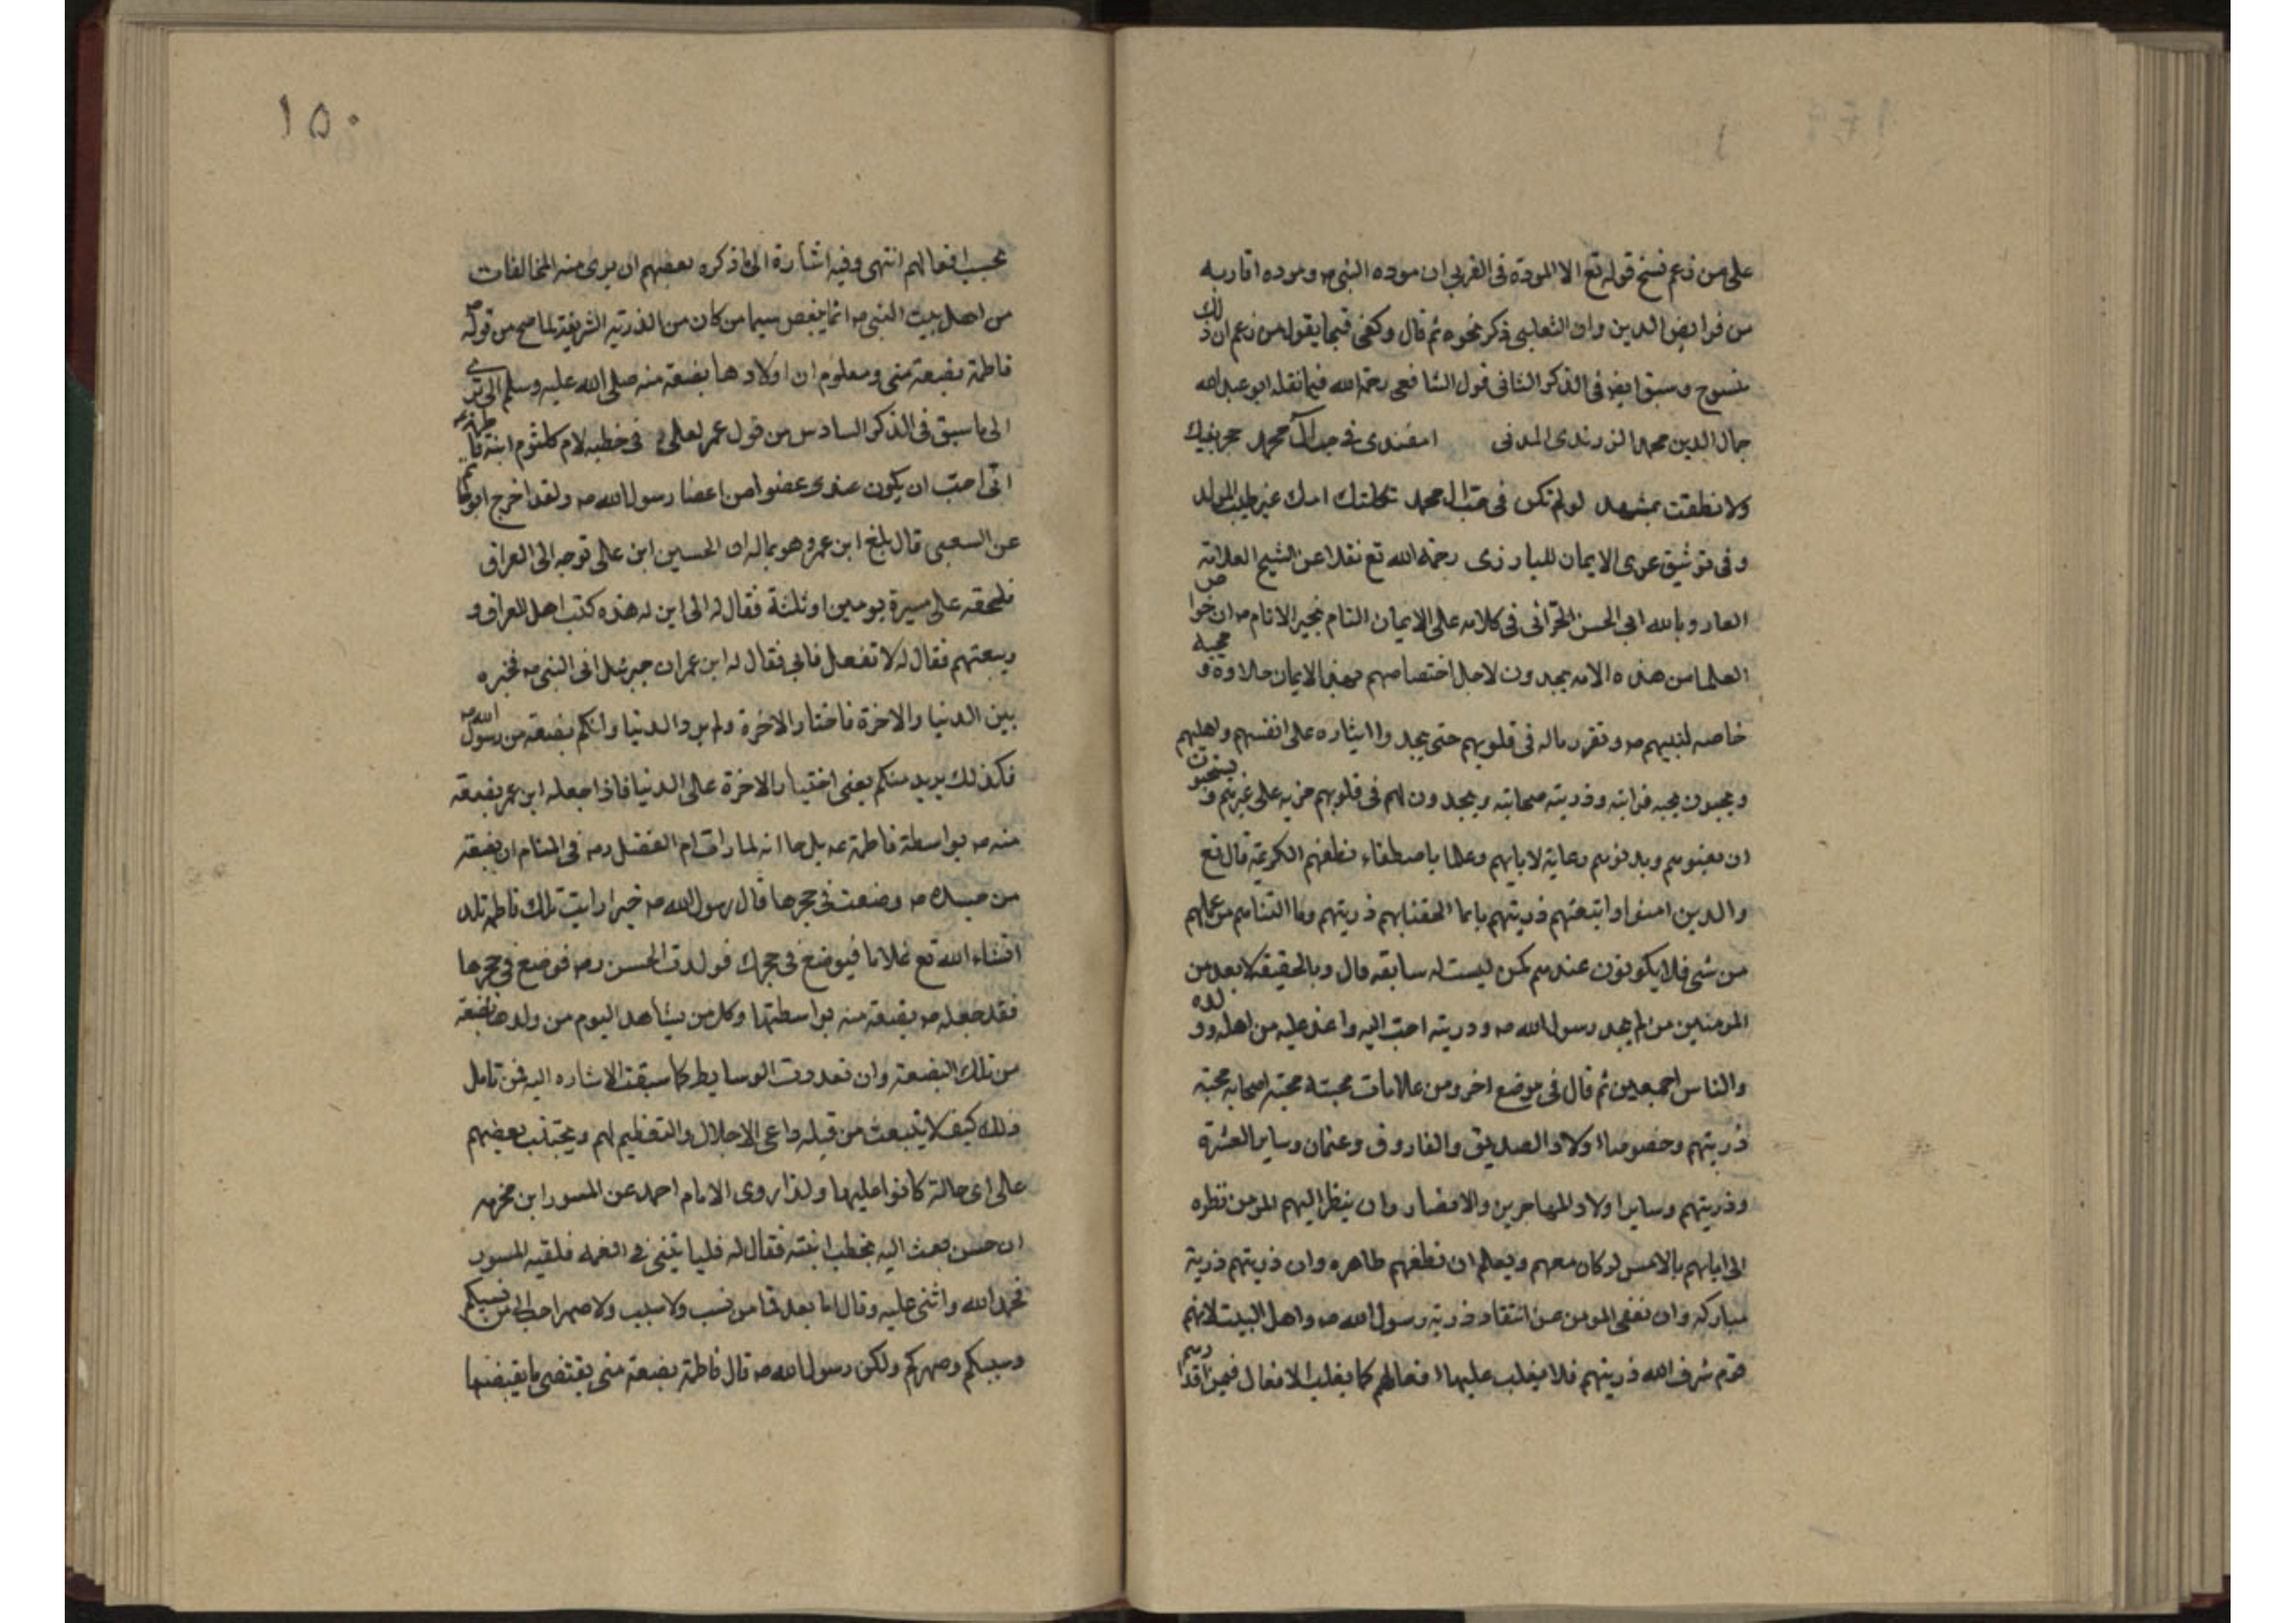 على من زعم نسخ قوله تع الا المودة فى القربى ان موده النبى صه وموده اقاربه
من فرايض الدين وان الثعلبى ذكر نحوه ثم قال وكفى قبحا يقول من زعم ان ذلك
منسوح وسبق ايضا فى الذكر الثانى قول الشافعى رحمة الله فيما نقله ابو عبد الله
جمال الدين محمد الزرندى المدنى فى حب آل محمد حجر بفيك
ولا نطقت بمشهد لو لم تكن فى حب ال محمد ثكلتك امك غير طيب المولد
وفى توثيق عرى الايمان للبارزى رحمة الله تع نقلا عن الشيح العلامة
العارف بالله ابى الحسن الحرانى فى كلامه على الايمان التام بخير الانام صه ان خواص
العلما من هذه الامه يجدون لاجل اختصاصهم بهذا الايمان حلاوة ومحبة
خاصه لنبيهم صه وتقرر ماله فى قلوبهم حتى يجدوا ايثاره على انفسهم واهليهم
ويحبون بحبه قرابته وذريته صحابته ويجدون لهم فى قلوبهم مزيه على غيرهم ويستحبون
ان يعينوهم ويدنوهم رعاية لابايهم وعلما باصطفاء نطفهم الكريمة قال تع
والدين امنوا واتبعتهم ذريتهم بايما الحقنا بهم ذريتهم وما التناهم من عملهم
من شى فلا يكونون عندهم كمن ليست له سابقه قال وبالحقيقة لا يعد من
المومنين من لم يجد رسول الله صه ودريته احب اليه واعز عليه من اهله وولده
والناس اجمعين ثم قال فى موضع اخر ومن علامات محبته محبة اصحابه محبة
ذريتهم وخصوصا اولاد الصديق والفاروق وعثمان وساير العشرة
وذريتهم وساير اولاد المهاجرين والانصار وان ينظر اليهم المومن نظره
الى ابايهم بالامس لو كان معهم ويعلم ان نطفهم طاهره وان ذريتهم ذرية
مباركه وان يغضى المومن عن انتقاد ذرية رسول الله صه واهل البيت لانهم
قوم شرف الله ذريتهم فلا يغلب عليها افعالهم كما يغلب الافعال فيمن اقدارهم
١٥٠
بحسب افعالهم انتهى وفيه اشارة الى ما ذكره بعضهم ان يرى منه المخالفات
من اهل بيت النبى صه انما يبغض سيما من كان من الذرية الشريفة لما صح من قوله صه
فاطمة بضعة منى ومعلوم ان اولادها بضعة منه صلى الله عليه وسلم الى ترى
الى ما سبق فى الذكر السادس من قول عمر لعلى فى خطبه لام كلثوم ابنة فاطمة
انى احب ان يكون عندى عضوا من اعضا رسول الله صه ولقد اخرج ابو حاتم
عن السعبى قال بلغ ابن عمر وهو بماله ان الحسين ابن على توجه الى العراق
فلحقه على مسيرة يومين او ثلثة فقال له الى اين له هذه كتب اهل العراق و
وبيعتهم فقال له لا تفعل فابى فقال له ابن عمر ان جبرئيل اتى النبى صه فخيره
بين الدنيا والاخرة فاختار الاخرة ولم يرد الدنيا وانكم بضعة من رسول الله صه
فكذلك يريد منكم يعنى اختيار الاخرة على الدنيا فاذا جعله ابن عمر بضعة
منه صه بواسطة فاطمة عه بل جا انه لما رات ام الفضل رضه فى المنام ان بضعة
من جسده صه وضعت فى حجرها قال رسول الله صه خيرا رايت تلك فاطمة تلد
انشاء الله تع غلاما فيوضع فى حجرك فولدت الحسن رضه فوضع فى حجرها
فقد جعله صه بضعة منه بواسطتها وكل من يشاهد اليوم من ولدها بضعة
من تلك البضعة وان تعددت الوسايط كما سبقت الاشاره اليه فمن تامل
ذلك كيف لا ينبعث من قبله داعى الاجلال والتعظيم لهم ويجتنب بعضهم
على اى حالة كانوا عليها ولذا روى الامام احمد عن المسور ابن مخرمه
ان حسن بعث اليه يخطب ابنته فقال له فلياتينى فى العمه فلقيه المسور
فحمد الله واثنى عليه وقال اما بعد فما من نسب ولا سبب ولا صهر احب الى من نسبكم
وسببكم وصهركم ولكن رسول الله صه قال فاطمة بضعة منى يقبضنى ما يقبضها